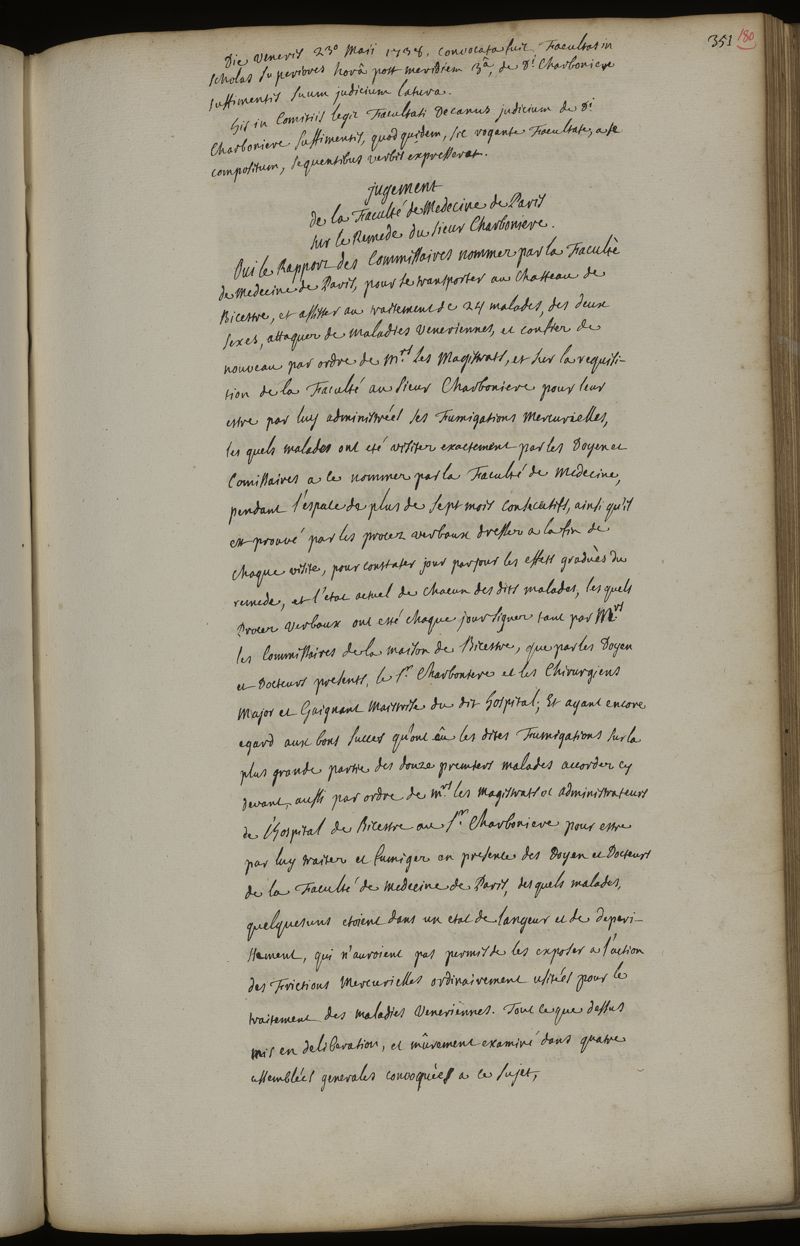 351 180
Die Veneris 23° Maii 1738. convocata fuit Facultas in
scholas superiores horâ post meridiem 3â, de Di Charboniere
suffimentis suum judicium latura.
His in Comitiis legit Facultati Decanus judicium de Di
Charboniere suffimentis, quod quidem, sic rogante Facultate, a se
compositum, sequentibus verbis expresserat.
jugement
de la Faculté de Medecine de Paris
sur le Remede du sieur Charboniere.
Oui le Rapport des Commissaires nommez par la Faculté
de Medecine de Paris, pour se transporter au Chasteau de
Bicestre, et assister au traitement de 24 malades, des deux
sexes, attaquez de maladies Veneriennes, et confiez de
nouveau par ordre de Mrs. les Magistrats, et sur la requisi-
tion de la Faculté au Sieur Charboniere pour leur
estre par luy administrées ses Fumigations Mercurielles,
les quels malades ont eté visitez exactement par les Doyen et
Comissaires a ce nommez par la Faculté de Medecine,
pendant l'espace de plus de sept mois consecutifs, ainsi qu'il
est prouvé par les procez verbaux dressez a la fin de
chaque visite, pour constater jour par jour les effets gradués du
remede, et l'etat actuel de chacun des dits malades, les quels
Procez Verbaux ont esté chaque jour signez tant par Mrs
les Commissaires de la maison de Bicestre, que par les Doyen
et Docteurs presents, le Sr. Charboniere et les Chirurgiens
Major et Gaignant Maistrise du dit Hospital; Et ayant encore
egard aux bons succez qu'ont eû les dites Fumigations sur la
plus grande partie des douze premiers malades accordez cy
devant, aussi par ordre de mrs. les magistrats et administrateurs
de l'Hospital de Bicestre au Sr. Charboniere pour estre
par luy traitez et fumigez en presence des Doyen et Docteurs
de la Faculté de Medecine de Paris, desquels malades,
quelquesuns etoient dans un etat de langeur et de deperi-
ssement, qui n'auroient pas permis de les exposer a l'action
des Frictions Mercurielles ordinairement usitées pour le
traitement des maladies Veneriennes. Tout ce que dessus
mis en deliberation, et mûrement examiné dans quatre
assemblées generales convoquées a ce sujet,